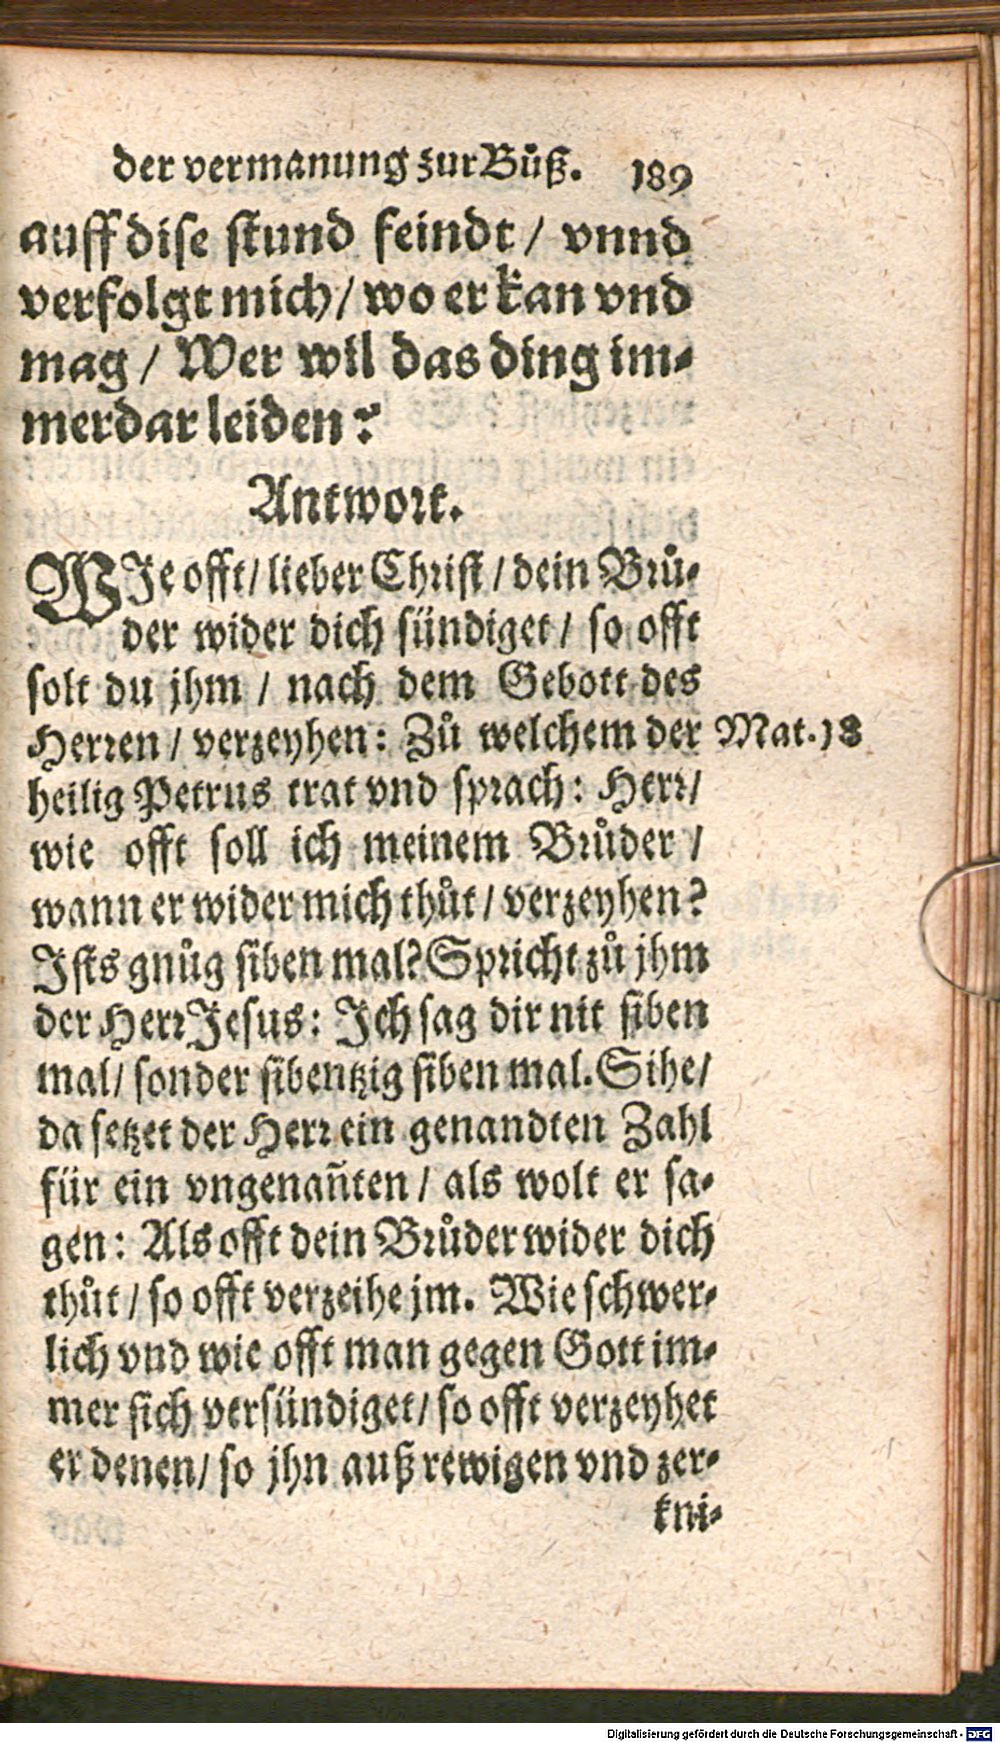 der vermanung zur Bůß. 189
auff dise stund feindt / vnnd
verfolgt mich / wo er kan vnd
mag / Wer wil das ding im-
merdar leiden?
Antwort.
WIe offt / lieber Christ / dein Brů-
der wider dich sündiget / so offt
solt du jhm / nach dem Gebott des
Herren / verzeyhen: Zů welchem der Mat. 18
heilig Petrus trat vnd sprach: Herr /
wie offt soll ich meinem Brůder /
wann er wider mich thůt / verzeyhen?
Ists gnůg siben mal? Spricht zů jhm
der Herr Jesus: Ich sag dir nit siben
mal / sonder sibentzig siben mal. Sihe /
da setzet der Herr ein genandten Zahl
für ein vngenañten / als wolt er sa-
gen: Als offt dein Brůder wider dich
thůt / so offt verzeihe jm. Wie schwer-
lich vnd wie offt man gegen Gott im-
mer sich versündiget / so offt verzeyhet
er denen / so jhn auß rewigen vnd zer-
kni-
Digitalisierung gefördert durch die Deutsche Forschungsgemeinschaft - DFG